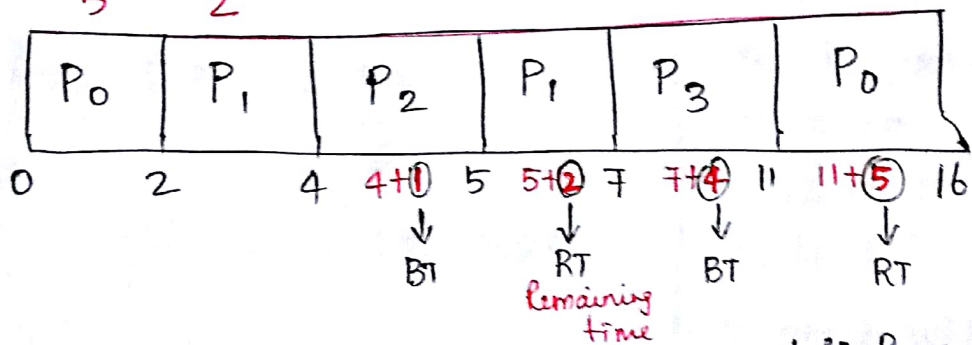 P0 P1 P2 P1 P3 P0
0 2 4 4+1 5 5+2 7 7+4 11 11+5 16
BT RT BT RT
Remaining
time